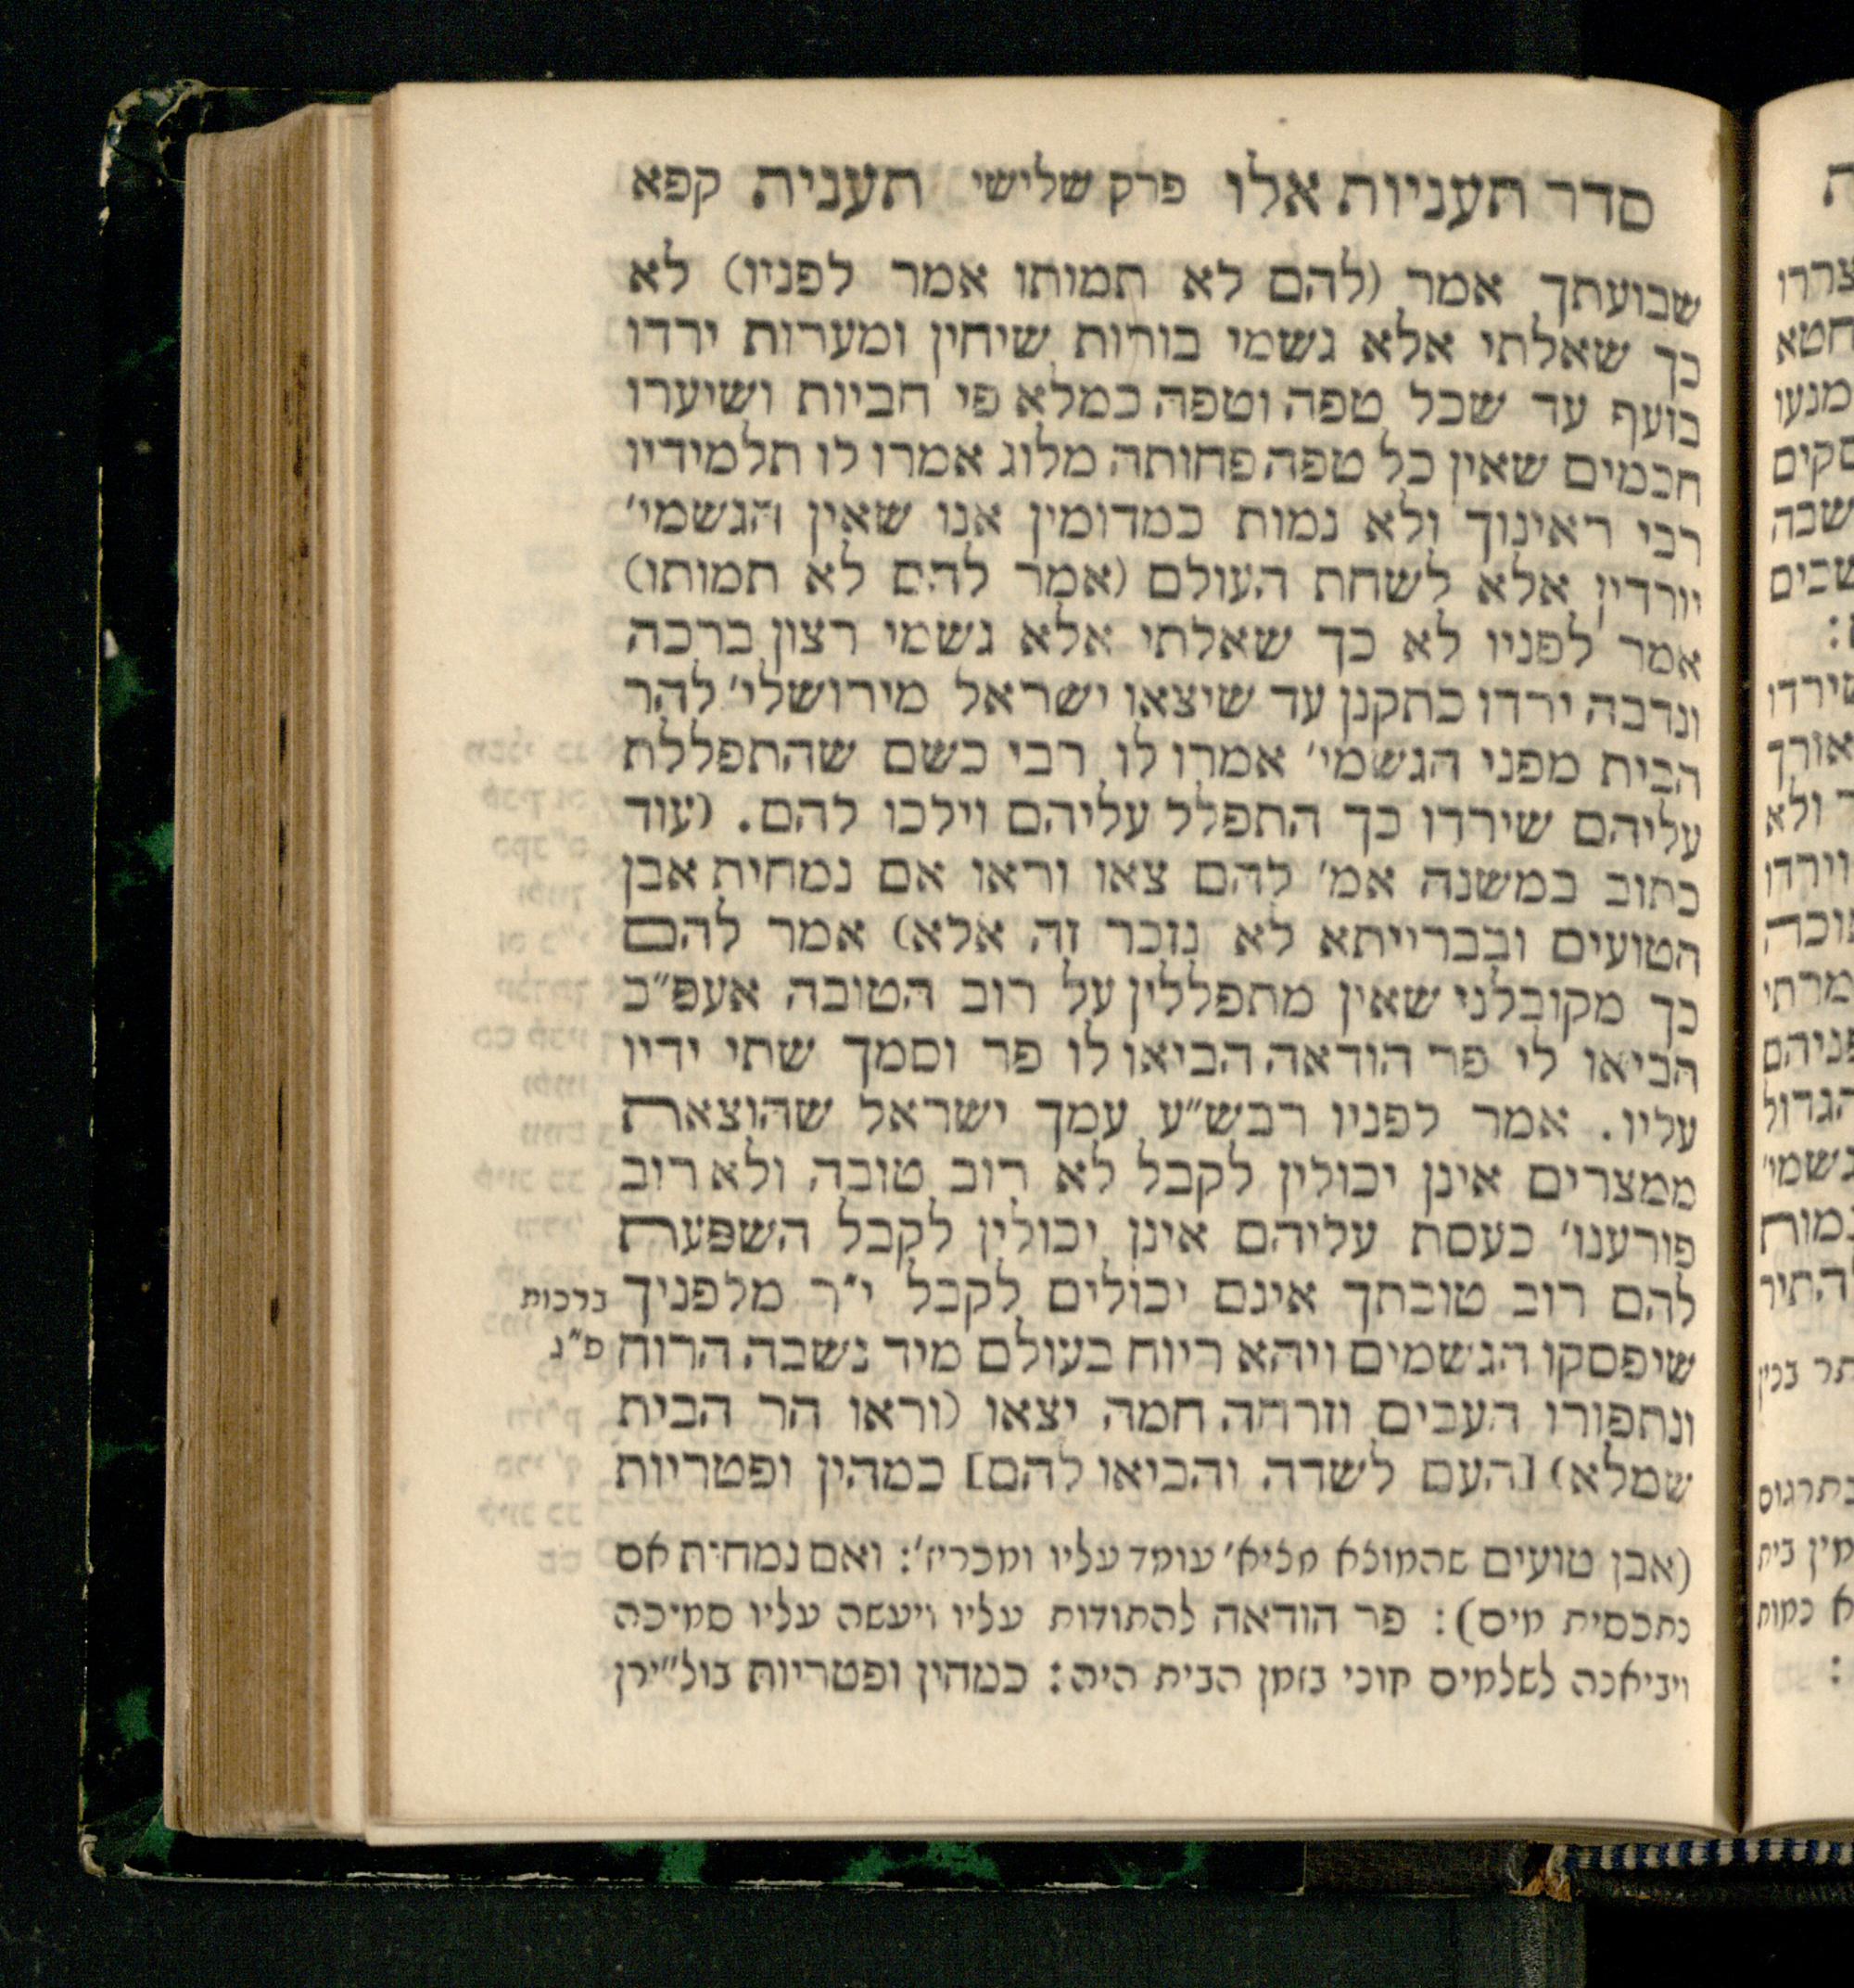 סדר תעניות אלו פרק שלישי תענית קפא
שבועתך אמר (להם לא תמותו אמר לפניו) לא
כך שאלתי אלא גשמי בורות שיחין ומערות ירדו
בזעף עד שכל טפה וטפה כמלא פי חביות ושיערו
חכמים שאין כל טפה פחותה מלוג אמרו לו תלמידיו
רבי ראינוך ולא נמות כמדומין אנו שאין הגשמי׳
יורדין אלא לשחת העולם (אמר להם לא תמותו)
אמר לפניו לא כך שאלתי אלא גשמי רצון ברכה
ונדבה ירדו כתקנן עד שיצאו ישראל מירושלי׳ להר
הבית מפני הגשמי׳ אמרו לו רבי כשם שהתפללת
עליהם שירדו כך התפלל עליהם וילכו להם. (עוד
כתוב במשנה אמ׳ להם צאו וראו אם נמחית אבן
הטועים ובברייתא לא נזכר זה אלא) אמר להם
כך מקובלני שאין מתפללין על רוב הטובה אעפ״כ
הביאו לי פר הודאה הביאו לו פר וסמך שתי ידיו
עליו. אמר לפניו רבש״ע עמך ישראל שהוצאת
ממצרים אינן יכולין לקבל לא רוב טובה ולא רוב
פורענו׳ כעסת עליהם אינן יכולין לקבל השפעת
להם רוב טובתך אינם יכולים לקבל י״ר מלפניך ברכות
שיפסקו הגשמים ויהא ריוח בעולם מיד נשבה הרוח פ״ג
ונתפזרו העבים וזרחה חמה יצאו (וראו הר הבית
שמלא) [העם לשדה והביאו להם] כמהין ופטריות
(אבן טועים שהמוצא מציא׳ עומד עליו ומכריז׳: ואם נמחית אם
נתכסית מים): פר הודאה להתודות עליו ויעשה עליו סמיכה
ויביאנה לשלמים חוני בזמן הבית היה: כמהין ופטריות בול״ירן
צררו
חטא
מנעו
סקים
שבה
שבים
שירדו
אורך
ולא
וירדו
מרתי
פניהם
הגדול
גשמי׳
נמות
להתיר
בתרגום
מין בית